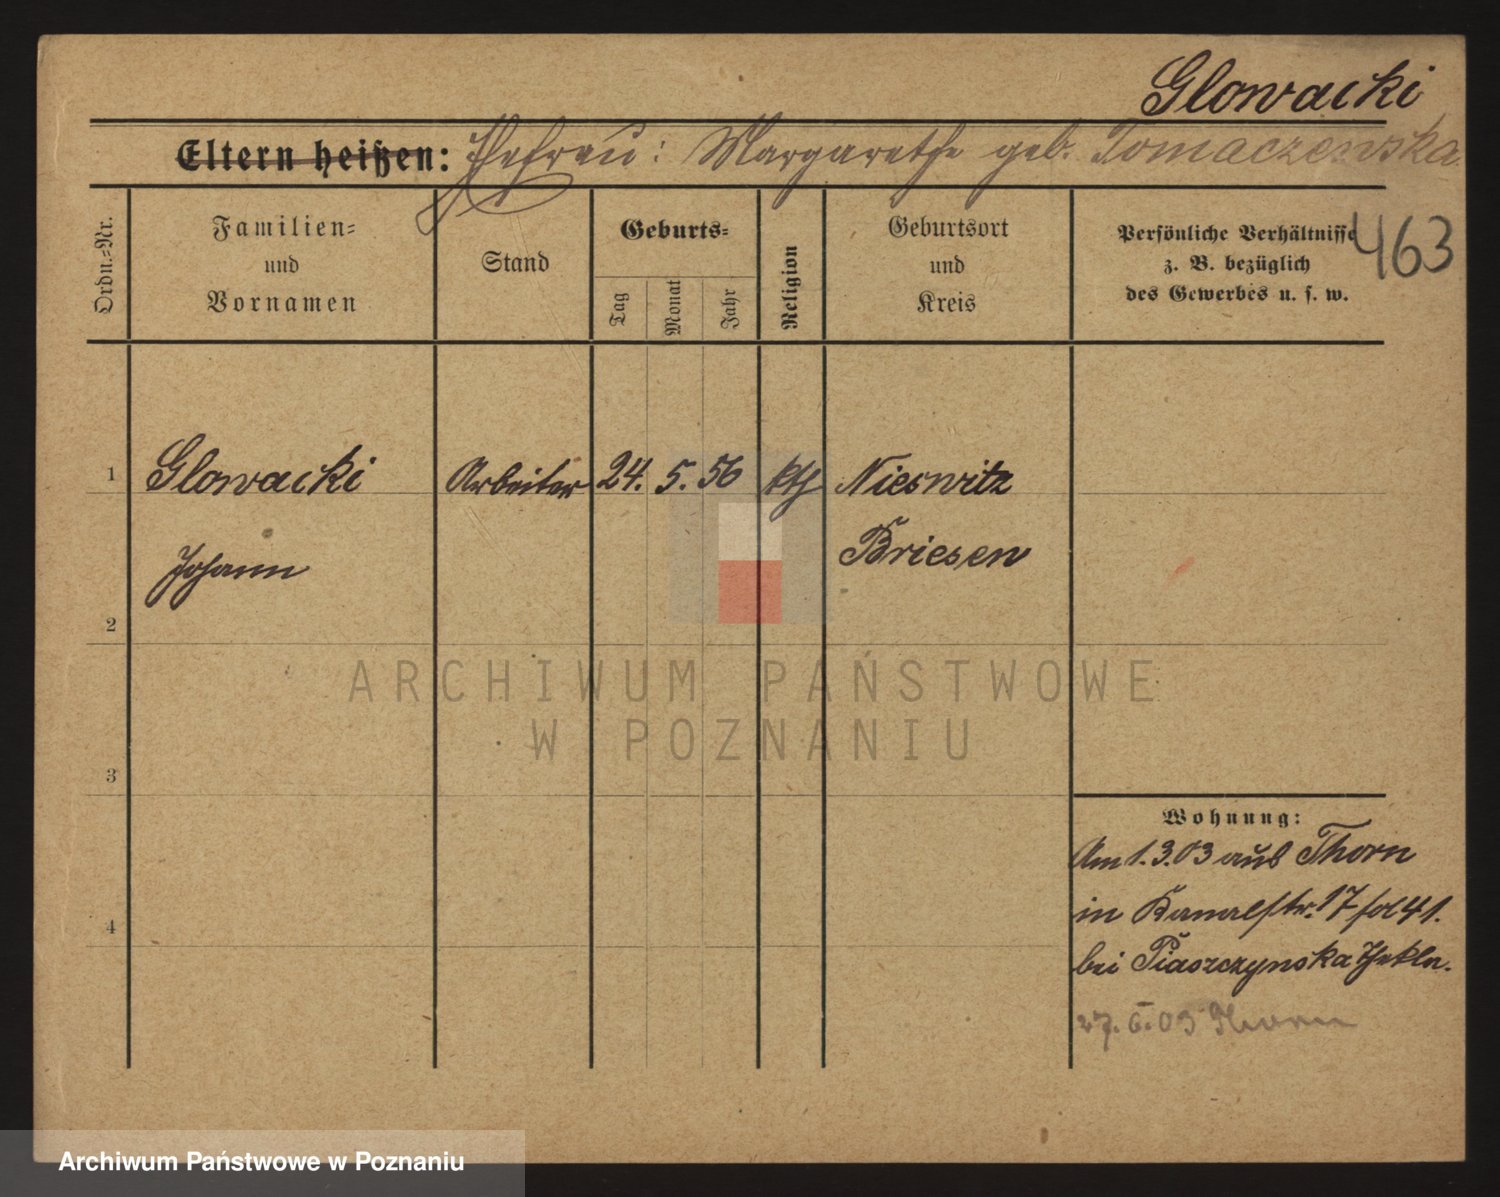 Glowacki
Eltern heißen: Ehefrau: Margarethe geb. Tomaczewska.
463
Ordn.-Nr.
Familien-
und
Vornamen
Stand
Geburts-
Tag
Monat
Jahr
Religion
Geburtsort
und
Kreis
Persönliche Verhältnisse
z. B. bezüglich
des Gewerbes u. s. w.
1 Glowacki Arbeiter 24. 5. 56 kth Nieswitz
Johann Briesen
2
3
4
Wohnung:
Am 1.3.03 aus Thorn
in Kanalstr. 17 fol 41.
bei Piaszczynska Thekla.
27. 6. 03 Thorn
ARCHIWUM PAŃSTWOWE
W POZNANIU
Archiwum Państwowe w Poznaniu